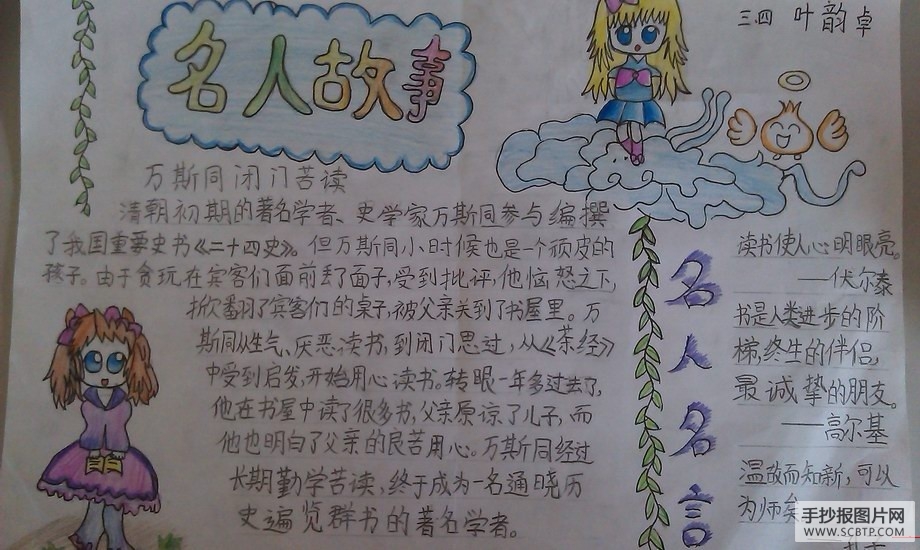 名人故事
三.四 叶韵卓
万斯同闭门苦读
清朝初期的著名学者、史学家万斯同参与编撰
了我国重要史书《二十四史》。但万斯同小时候也是一个顽皮的
孩子。由于贪玩在宾客们面前丢了面子,受到批评,他恼怒之下,
掀翻了宾客们的桌子,被父亲关到了书屋里。万
斯同从生气、厌恶读书,到闭门思过,从《茶经》
中受到启发,开始用心读书。转眼一年多过去了,
他在书屋中读了很多书,父亲原谅了儿子,而
他也明白了父亲的良苦用心。万斯同经过
长期勤学苦读,终于成为一名通晓历
史遍览群书的著名学者。
名人名言
读书使人心明眼亮。
——伏尔泰
书是人类进步的阶
梯,终生的伴侣,
最诚挚的朋友。
——高尔基
温故而知新,可以
为师矣
手抄报图片网
WWW.SCBTP.COM